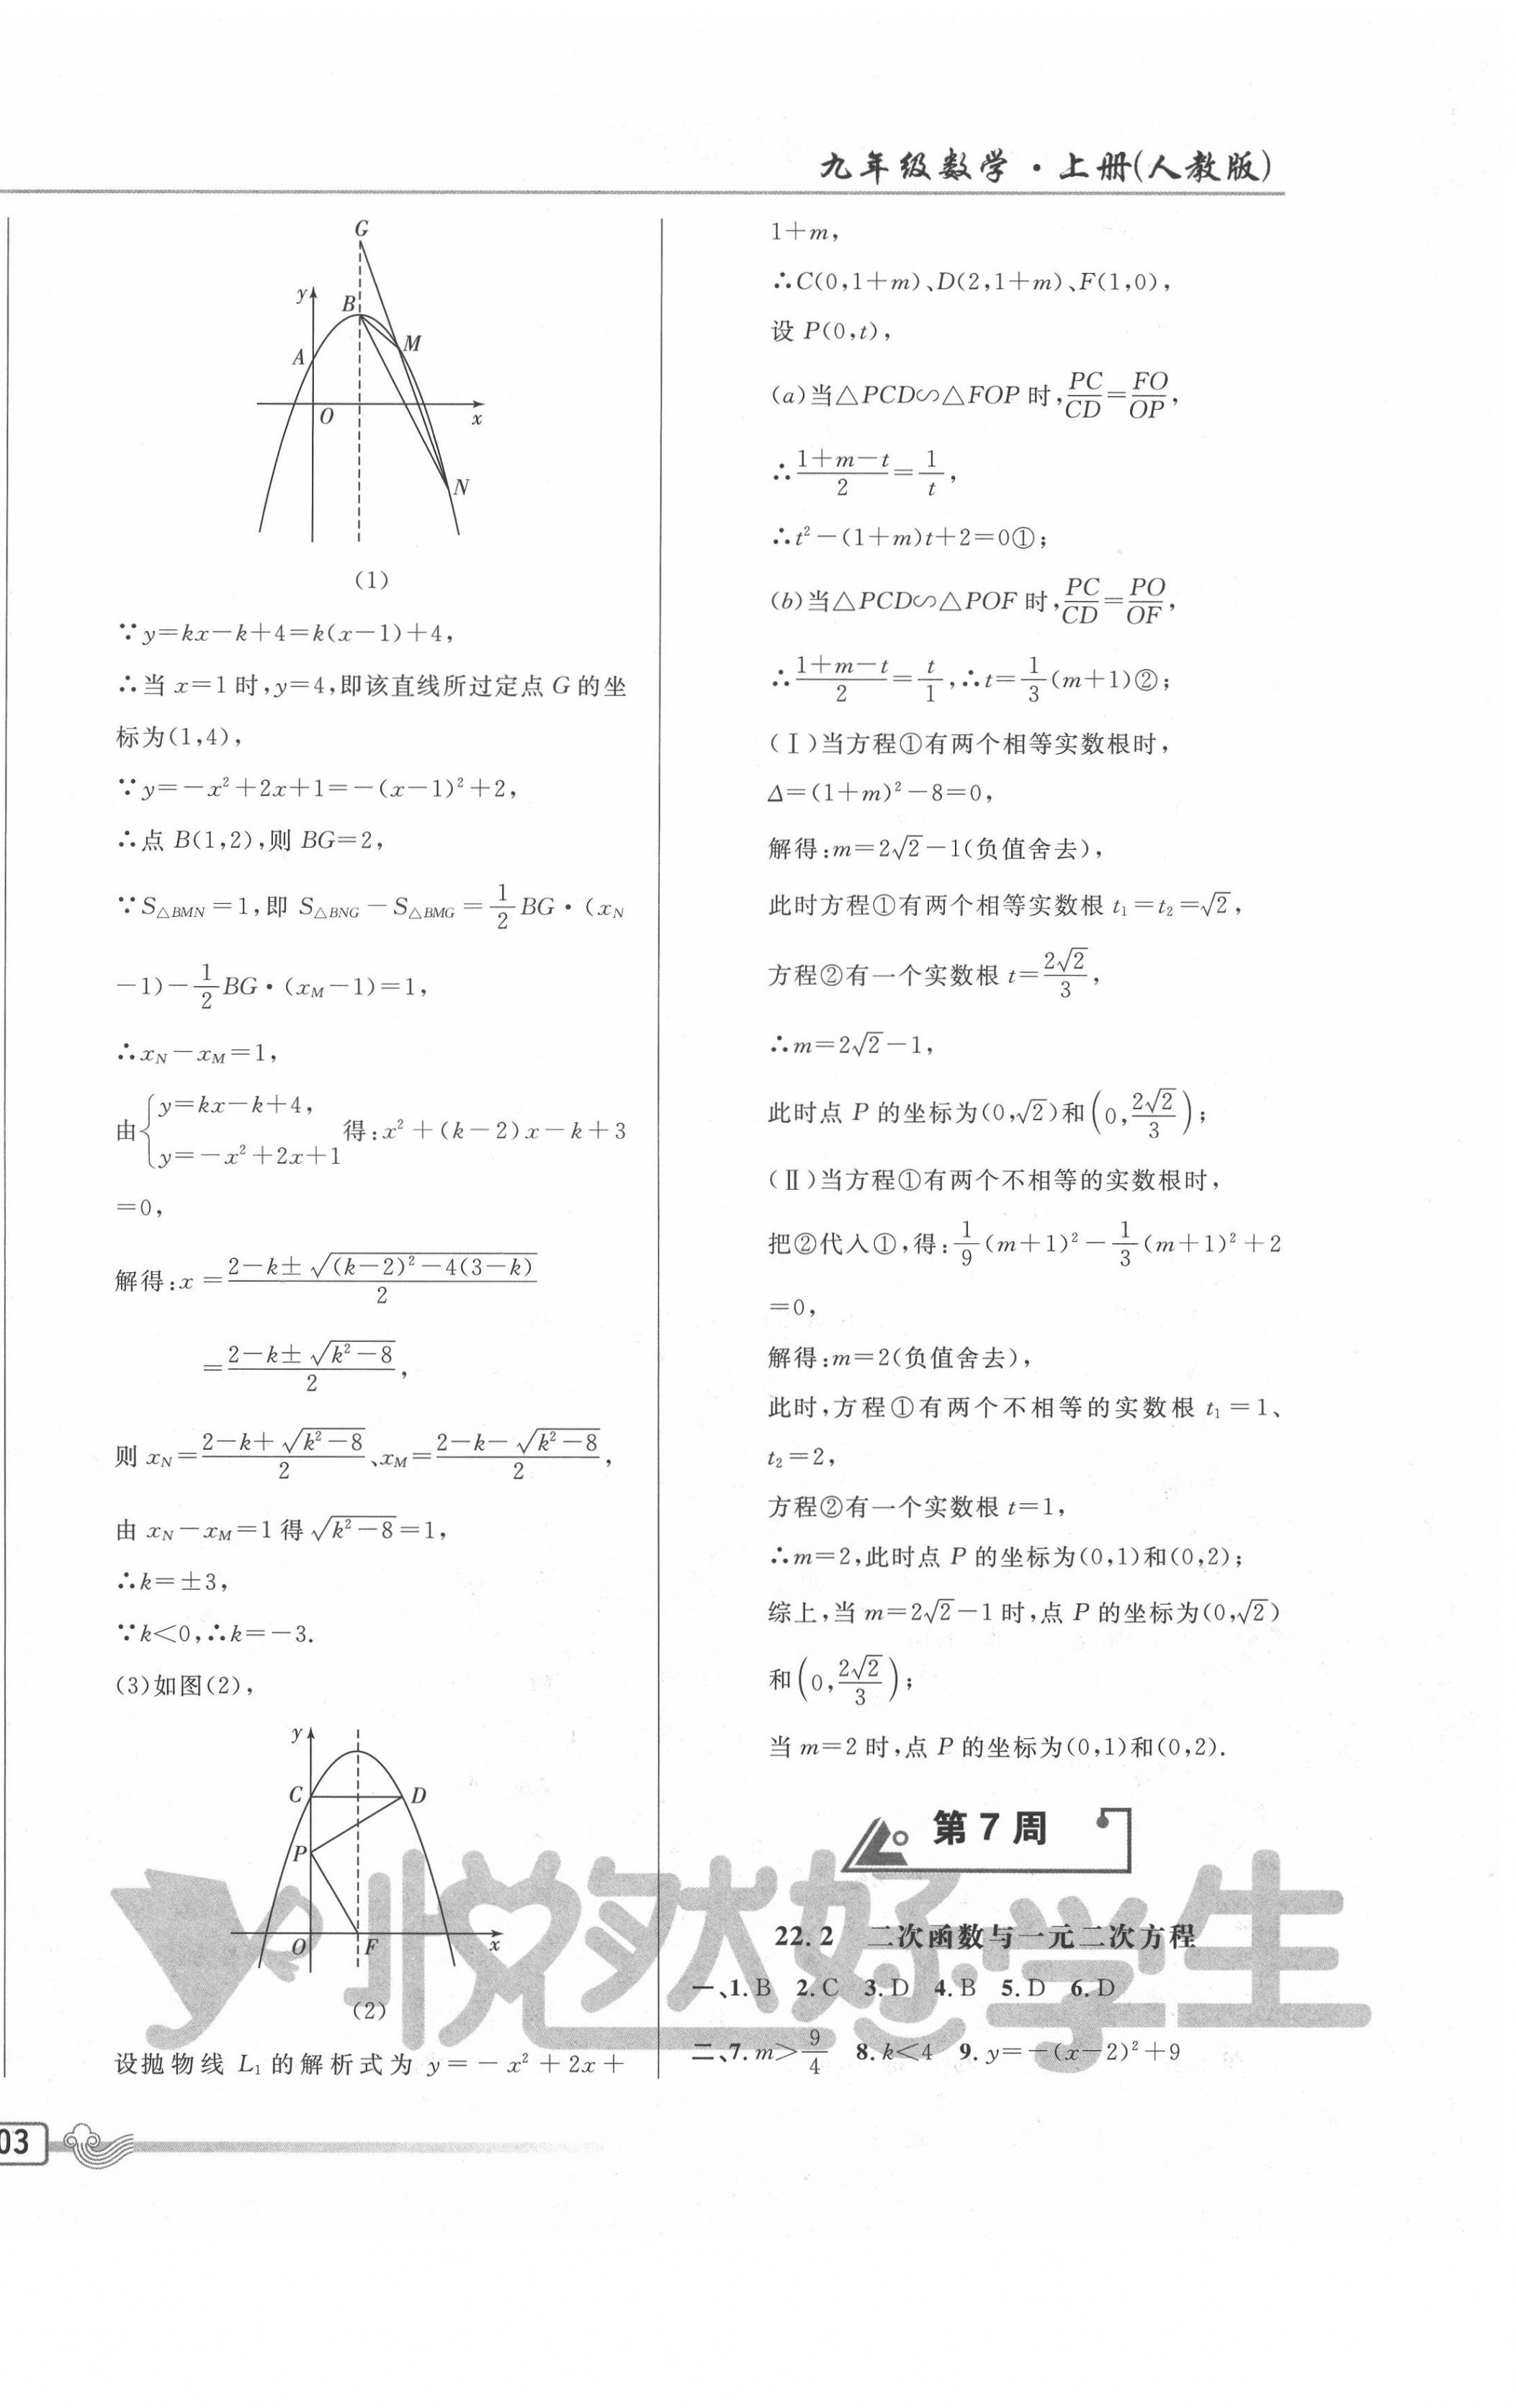 九年级数学·上册(人教版)
G
y
B
M
A
O
x
N
(1)
∵y=kx-k+4=k(x-1)+4,
∴当 x=1 时,y=4,即该直线所过定点 G 的坐
标为(1,4),
∵y=-x²+2x+1=-(x-1)²+2,
∴点 B(1,2),则 BG=2,
∵S△BMN=1,即 S△BNG-S△BMG=1/2 BG·(xN
-1)-1/2 BG·(xM-1)=1,
∴xN-xM=1,
由{y=kx-k+4, y=-x²+2x+1 得:x²+(k-2)x-k+3
=0,
解得:x=(2-k±√((k-2)²-4(3-k)))/2
=(2-k±√(k²-8))/2,
则 xN=(2-k+√(k²-8))/2、xM=(2-k-√(k²-8))/2,
由 xN-xM=1 得√(k²-8)=1,
∴k=±3,
∵k<0,∴k=-3.
(3)如图(2),
y
C
D
P
O
F
x
(2)
设抛物线 L₁ 的解析式为 y=-x²+2x+
1+m,
∴C(0,1+m)、D(2,1+m)、F(1,0),
设 P(0,t),
(a)当△PCD∽△FOP 时,PC/CD=FO/OP,
∴(1+m-t)/2=1/t,
∴t²-(1+m)t+2=0①;
(b)当△PCD∽△POF 时,PC/CD=PO/OF,
∴(1+m-t)/2=t/1,∴t=1/3(m+1)②;
(Ⅰ)当方程①有两个相等实数根时,
Δ=(1+m)²-8=0,
解得:m=2√2-1(负值舍去),
此时方程①有两个相等实数根 t₁=t₂=√2,
方程②有一个实数根 t=2√2/3,
∴m=2√2-1,
此时点 P 的坐标为(0,√2)和(0,2√2/3);
(Ⅱ)当方程①有两个不相等的实数根时,
把②代入①,得:1/9(m+1)²-1/3(m+1)²+2
=0,
解得:m=2(负值舍去),
此时,方程①有两个不相等的实数根 t₁=1、
t₂=2,
方程②有一个实数根 t=1,
∴m=2,此时点 P 的坐标为(0,1)和(0,2);
综上,当 m=2√2-1 时,点 P 的坐标为(0,√2)
和(0,2√2/3);
当 m=2 时,点 P 的坐标为(0,1)和(0,2).
第7周
22.2 二次函数与一元二次方程
一、1.B 2.C 3.D 4.B 5.D 6.D
二、7.m>9/4 8.k<4 9.y=-(x-2)²+9
悦然好学生
03